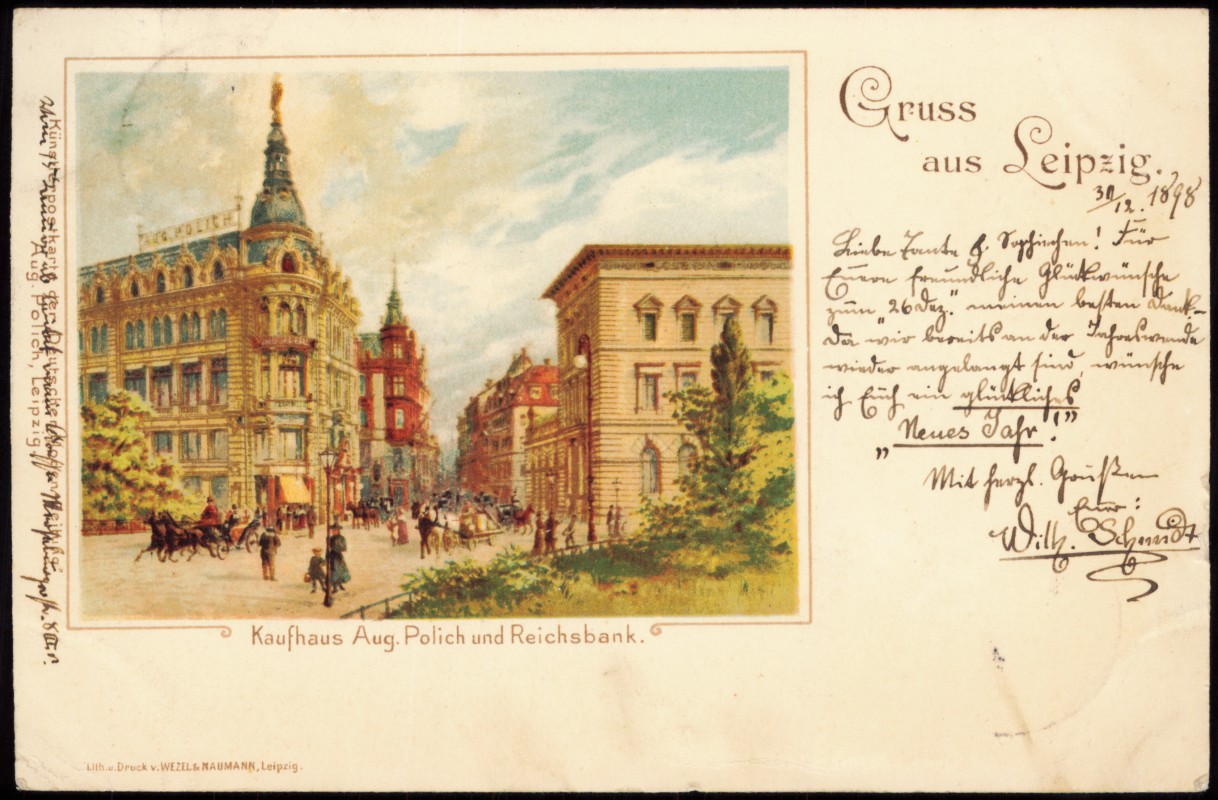 Gruss
aus Leipzig.
30/12. 1898
Liebe Tante & Sophiechen! Für
Euere freundliche Glückwünsche
zum "26 Dez." meinen besten Dank-
Da wir bereits an der Jahreswende
wieder angelangt sind, wünsche
ich Euch ein glückliches
"Neues Jahr!"
Mit herzl. Grüßen
Euer:
Wilh. Schmidt
AUG. POLICH
Kaufhaus Aug. Polich und Reichsbank.
Künstlerpostkarte der Deutsche
Aug. Polich, Leipzig
Lith. u. Druck v. WEZEL & NAUMANN, Leipzig.